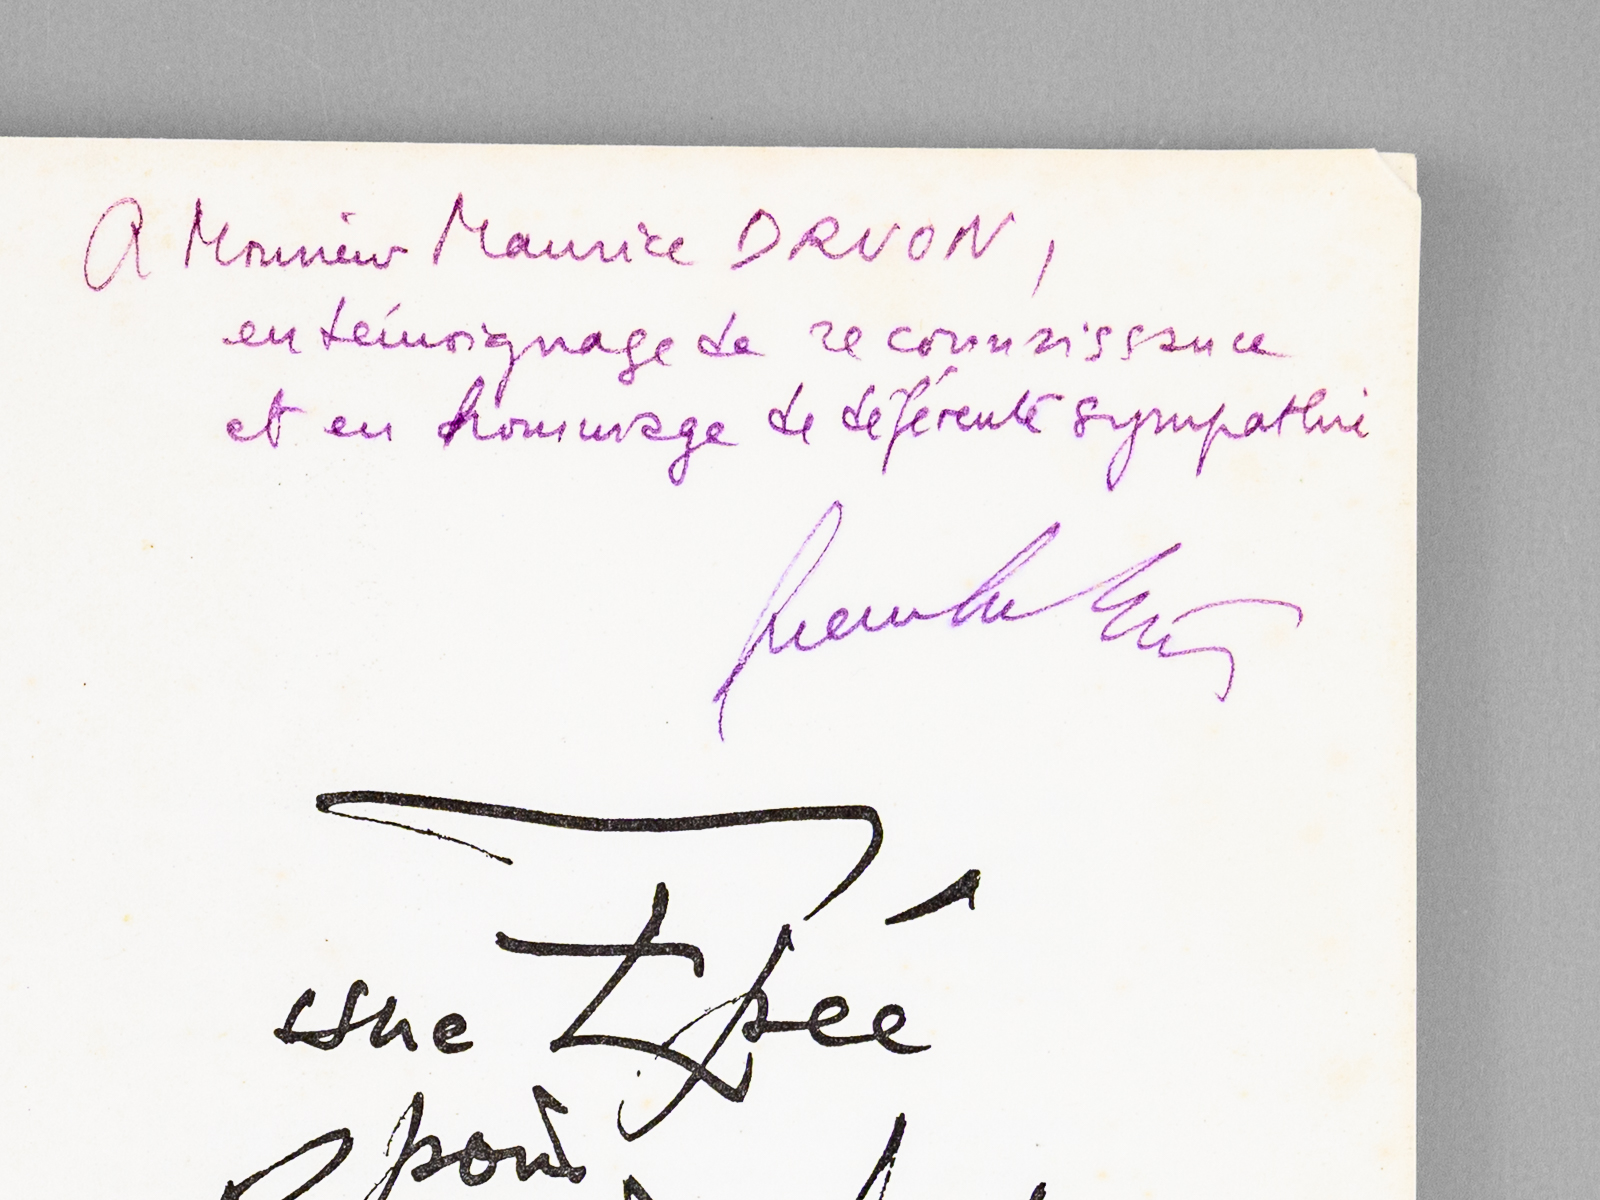 A Monsieur Maurice DRUON,
en témoignage de reconnaissance
et en hommage de déférente sympathie
une Epée
pour